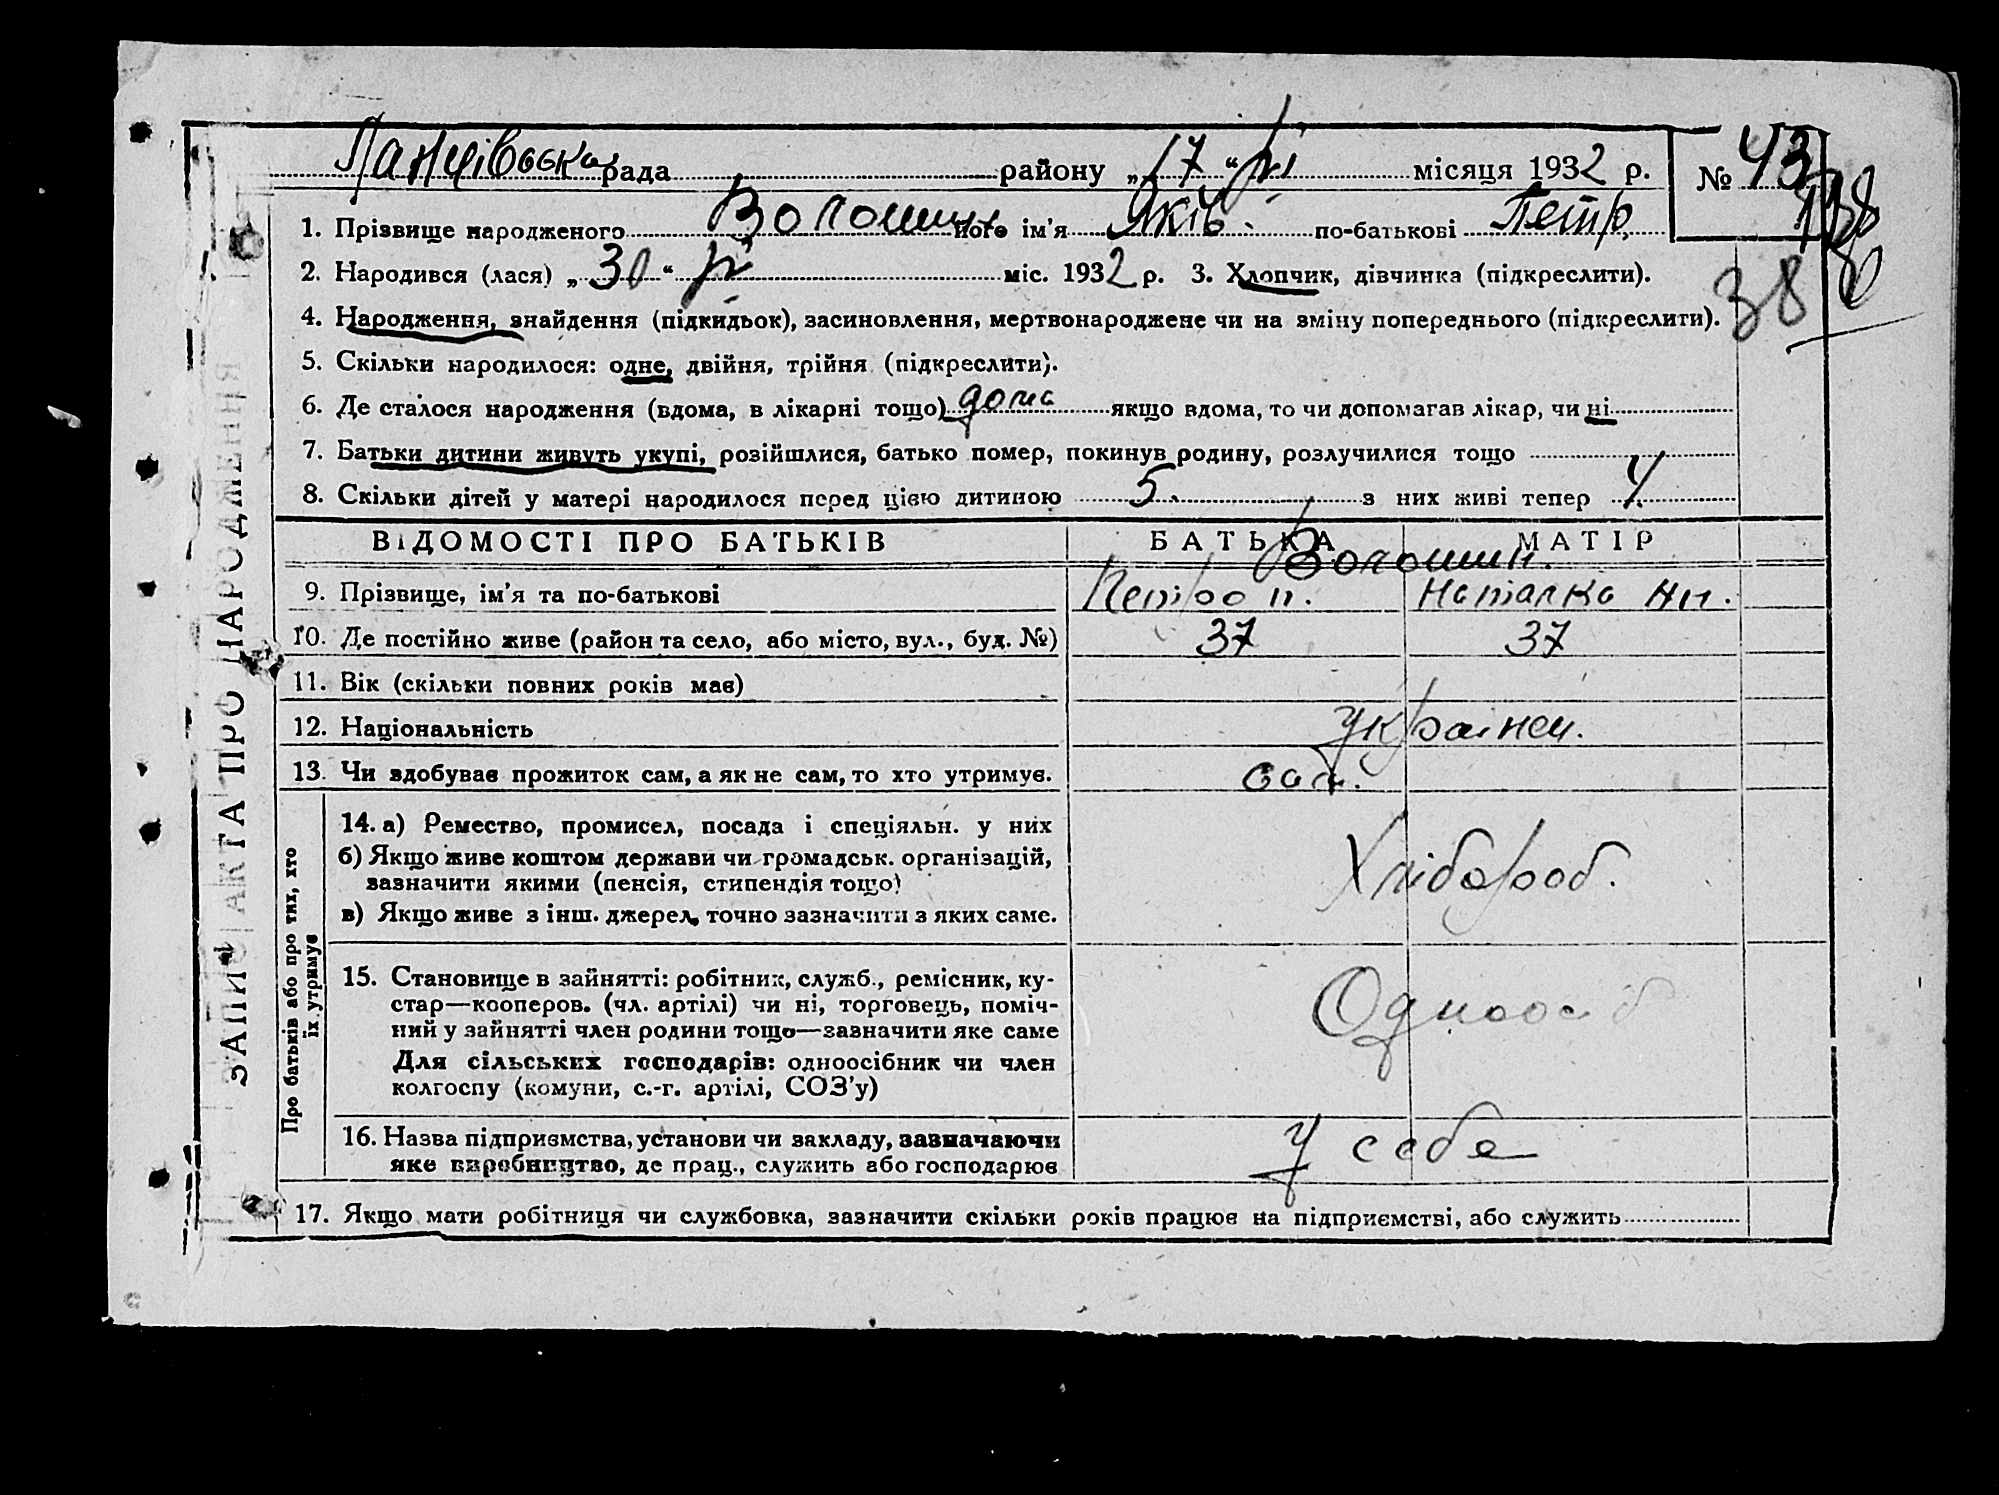 Панчівська рада района „17“ VI місяця 1932 р. № 43
1. Прізвище народженого Волошин його ім'я Яків по-батькові Петр.
2. Народився (лася) „30“ міс. 1932 р. 3. Хлопчик, дівчинка (підкреслити).
38
4. Народження, знайдення (підкидьок), засиновлення, мертвонароджене чи на зміну попереднього (підкреслити).
5. Скільки народилося: одне, двійня, трійня (підкреслити).
6. Де сталося народження (вдома, в лікарні тощо) дома якщо вдома, то чи допомагав лікар, чи ні
7. Батьки дитини живуть укупі, розійшлися, батько помер, покинув родину, розлучилися тощо
8. Скільки дітей у матері народилося перед цією дитиною 5. з них живі тепер 4
ВІДОМОСТІ ПРО БАТЬКІВ БАТЬКА МАТІР
Волошин.
9. Прізвище, ім'я та по-батькові Петро п. Наталка Ни.
10. Де постійно живе (район та село, або місто, вул., буд. №) 37 37
11. Вік (скільки повних років має)
12. Національність Українец.
13. Чи здобуває прожиток сам, а як не сам, то хто утримує. сам.
14. а) Ремество, промисел, посада і спеціяльн. у них
б) Якщо живе коштом держави чи громадськ. організацій,
зазначити якими (пенсія, стипендія тощо)
Хлібороб.
в) Якщо живе з інш. джерел, точно зазначити з яких саме.
15. Становище в зайнятті: робітник, служб., ремісник, ку-
стар—кооперов. (чл. артілі) чи ні, торговець, поміч-
ний у зайнятті член родини тощо—зазначити яке саме
Одноосіб
Для сільських господарів: одноосібник чи член
колгоспу (комуни, с.-г. артілі, СОЗ'у)
16. Назва підприємства, установи чи закладу, зазначаючи
яке виробництво, де прац., служить або господарює
У себе
17. Якщо мати робітниця чи службовка, зазначити скільки років працює на підприємстві, або служить
ЗАПИС АКТА ПРО НАРОДЖЕННЯ
Про батьків або про тих, хто
їх утримує